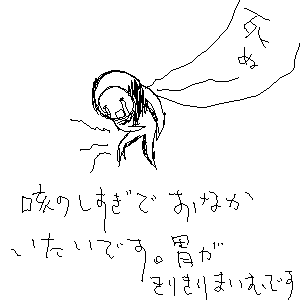 死ぬ
咳のしすぎでおなか
いたいです。胃が
きりきりまいむです